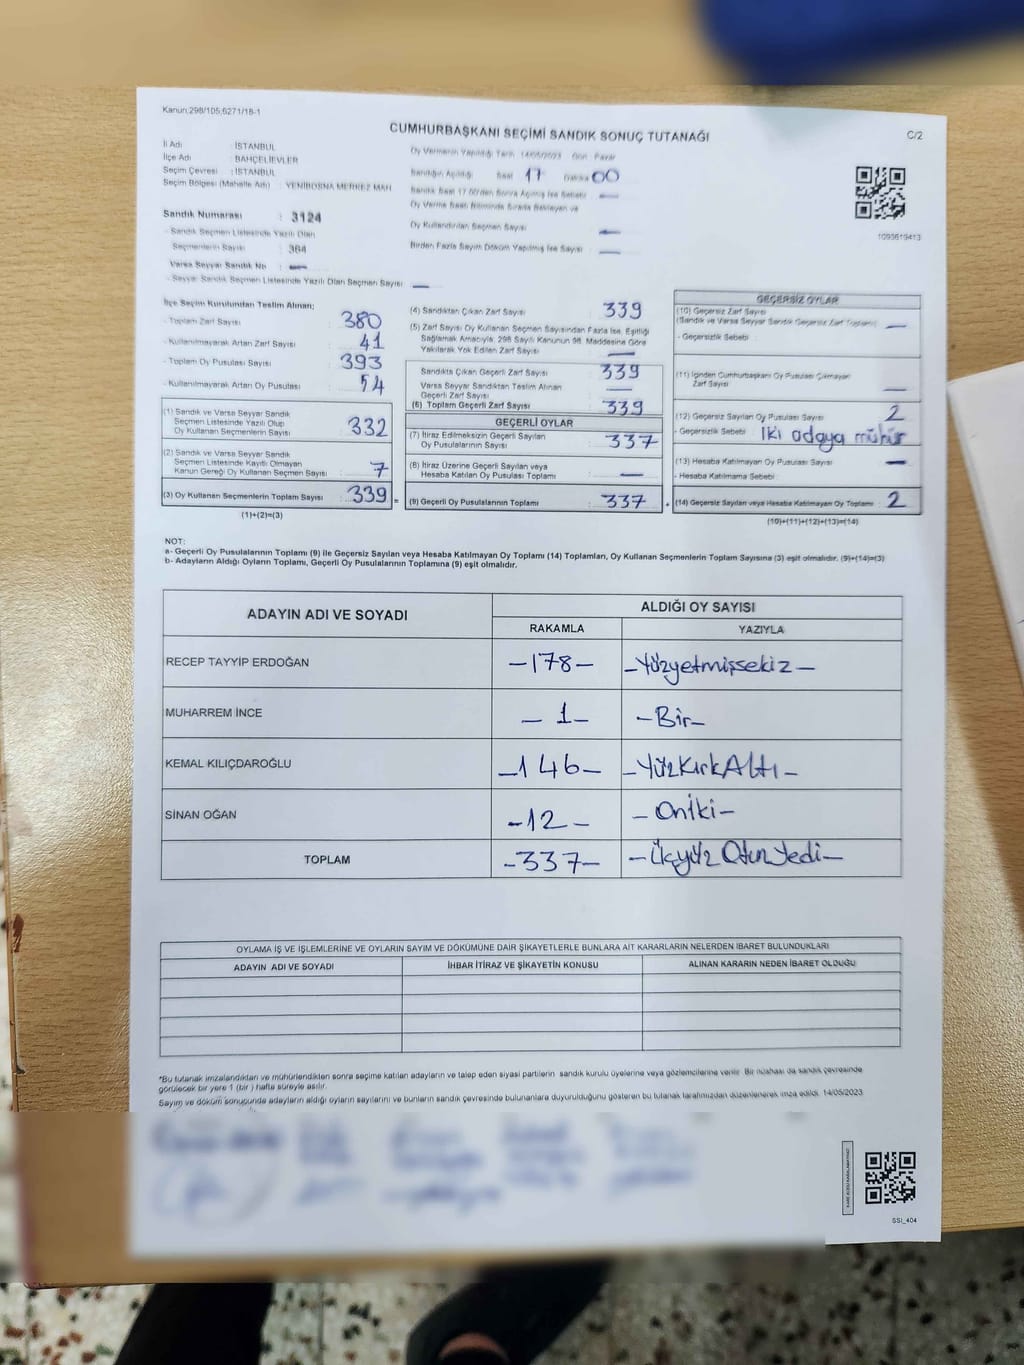 Kanun:298/105;6271/18-1
CUMHURBAŞKANI SEÇİMİ SANDIK SONUÇ TUTANAĞI
C/2
İl Adı : İSTANBUL
İlçe Adı : BAHÇELİEVLER
Seçim Çevresi : İSTANBUL
Seçim Bölgesi (Mahalle Adı) : YENİBOSNA MERKEZ MAH.
Sandık Numarası : 3124
- Sandık Seçmen Listesinde Yazılı Olan
Seçmenlerin Sayısı : 364
Varsa Seyyar Sandık No : —
- Seyyar Sandık Seçmen Listesinde Yazılı Olan Seçmen Sayısı : —
Oy Vermenin Yapıldığı Tarih 14/05/2023 Gün : Pazar
Sandığın Açıldığı Saat 17 Dakika 00
Sandık Saat 17.00'den Sonra Açılmış İse Sebebi : —
Oy Verme Saati Bitiminde Sırada Bekleyen ve
Oy Kullandırılan Seçmen Sayısı : —
Birden Fazla Sayım Döküm Yapılmış İse Sayısı : —
1093619413
İlçe Seçim Kurulundan Teslim Alınan;
- Toplam Zarf Sayısı : 380
- Kullanılmayarak Artan Zarf Sayısı : 41
- Toplam Oy Pusulası Sayısı : 393
- Kullanılmayarak Artan Oy Pusulası : 54
(1) Sandık ve Varsa Seyyar Sandık
Seçmen Listesinde Yazılı Olup
Oy Kullanan Seçmenlerin Sayısı : 332
(2) Sandık ve Varsa Seyyar Sandık
Seçmen Listesinde Kayıtlı Olmayan
Kanun Gereği Oy Kullanan Seçmen Sayısı : 7
(3) Oy Kullanan Seçmenlerin Toplam Sayısı : 339 =
(1)+(2)=(3)
(4) Sandıktan Çıkan Zarf Sayısı : 339
(5) Zarf Sayısı Oy Kullanan Seçmen Sayısından Fazla İse, Eşitliği
Sağlamak Amacıyla, 298 Sayılı Kanunun 98. Maddesine Göre
Yakılarak Yok Edilen Zarf Sayısı : —
Sandıkta Çıkan Geçerli Zarf Sayısı : 339
Varsa Seyyar Sandıktan Teslim Alınan
Geçerli Zarf Sayısı : —
(6) Toplam Geçerli Zarf Sayısı : 339
GEÇERLİ OYLAR
(7) İtiraz Edilmeksizin Geçerli Sayılan
Oy Pusulalarının Sayısı : 337
(8) İtiraz Üzerine Geçerli Sayılan veya
Hesaba Katılan Oy Pusulaları Toplamı : —
(9) Geçerli Oy Pusulalarının Toplamı : 337 +
GEÇERSİZ OYLAR
(10) Geçersiz Zarf Sayısı
(Sandık ve Varsa Seyyar Sandık Geçersiz Zarf Toplamı) : —
- Geçersizlik Sebebi :
(11) İçinden Cumhurbaşkanı Oy Pusulası Çıkmayan
Zarf Sayısı : —
(12) Geçersiz Sayılan Oy Pusulası Sayısı : 2
- Geçersizlik Sebebi : İki adaya mühür
(13) Hesaba Katılmayan Oy Pusulası Sayısı : —
- Hesaba Katılmama Sebebi :
(14) Geçersiz Sayılan veya Hesaba Katılmayan Oy Toplamı : 2
(10)+(11)+(12)+(13)=(14)
NOT:
a- Geçerli Oy Pusulalarının Toplamı (9) ile Geçersiz Sayılan veya Hesaba Katılmayan Oy Toplamı (14) Toplamları, Oy Kullanan Seçmenlerin Toplam Sayısına (3) eşit olmalıdır. (9)+(14)=(3)
b- Adayların Aldığı Oyların Toplamı, Geçerli Oy Pusulalarının Toplamına (9) eşit olmalıdır.
ADAYIN ADI VE SOYADI
ALDIĞI OY SAYISI
RAKAMLA YAZIYLA
RECEP TAYYİP ERDOĞAN -178- -Yüzyetmişsekiz-
MUHARREM İNCE -1- -Bir-
KEMAL KILIÇDAROĞLU -146- -YüzKırkAltı-
SİNAN OĞAN -12- -Oniki-
TOPLAM -337- -Üçyüz OtuzYedi-
OYLAMA İŞ VE İŞLEMLERİNE VE OYLARIN SAYIM VE DÖKÜMÜNE DAİR ŞİKAYETLERLE BUNLARA AİT KARARLARIN NELERDEN İBARET BULUNDUKLARI
ADAYIN ADI VE SOYADI İHBAR İTİRAZ VE ŞİKAYETİN KONUSU ALINAN KARARIN NEDEN İBARET OLDUĞU
*Bu tutanak imzalandıktan ve mühürlendikten sonra seçime katılan adayların ve talep eden siyasi partilerin sandık kurulu üyelerine veya gözlemcilerine verilir. Bir nüshası da sandık çevresinde
görülecek bir yere 1 (bir) hafta süreyle asılır.
Sayım ve döküm sonucunda adayların aldığı oyların sayılarını ve bunların sandık çevresinde bulunanlara duyurulduğunu gösteren bu tutanak tarafımızdan düzenlenerek imza edildi. 14/05/2023
SSI_404